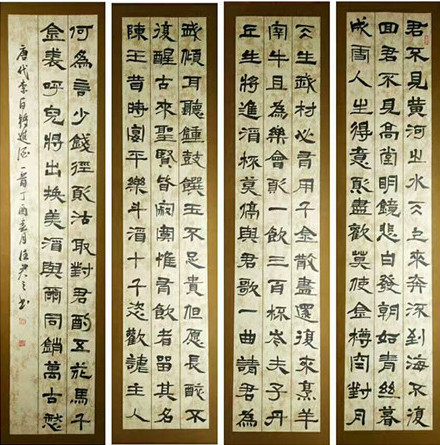 君不見黃河之水天上來奔流到海不復
回君不見高堂明鏡悲白發朝如青絲暮
成雪人生得意須盡歡莫使金樽空對月
天生我材必有用千金散盡還復來烹羊
宰牛且為樂會須一飲三百杯岑夫子丹
丘生將進酒杯莫停與君歌一曲請君為
我傾耳聽鍾鼓饌玉不足貴但願長醉不
復醒古來聖賢皆寂寞惟有飲者留其名
陳王昔時宴平樂斗酒十千恣歡謔主人
何為言少錢徑須沽取對君酌五花馬千
金裘呼兒將出換美酒與爾同銷萬古愁
唐代李白將進酒一首丁酉春月書